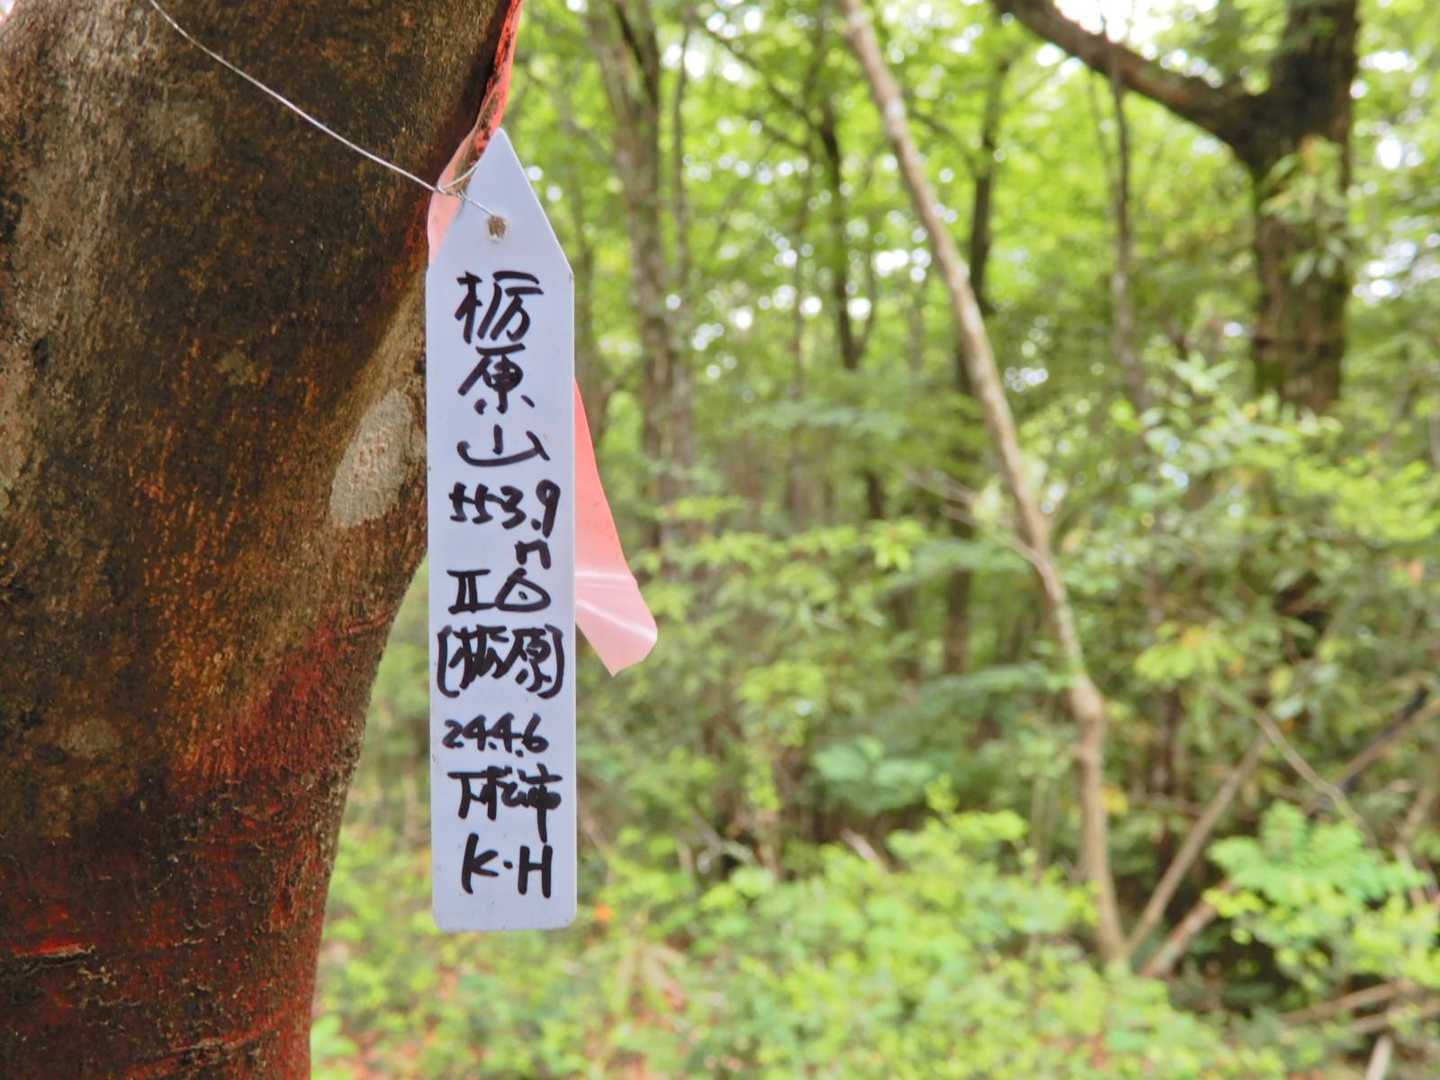 栃原山
553.9
m
Ⅱ△
[栃原]
24.4.6
下松市
K・H